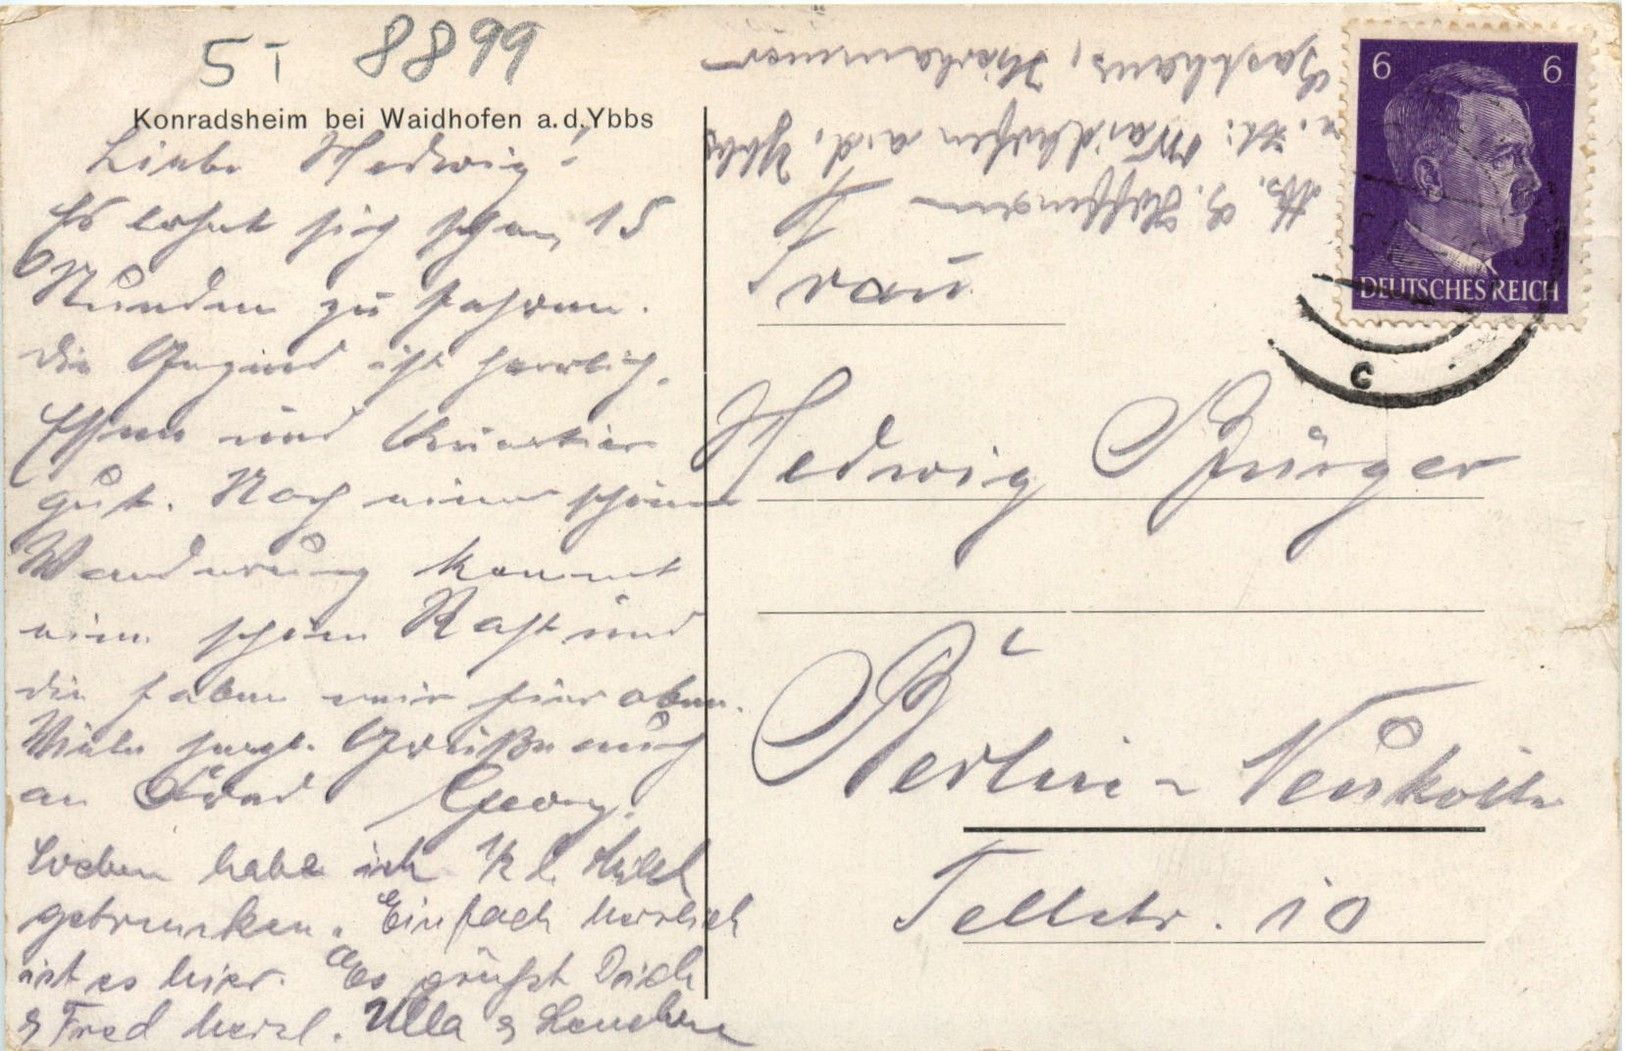 5T 8899
Konradsheim bei Waidhofen a.d.Ybbs
Liebe Hedwig!
Es lohnt sich schon, 15
Stunden zu fahren.
Die Gegend ist herrlich.
Essen und Quartier
gut. Nach einer schönen
Wanderung kommt
eine schöne Rast und
die haben wir hier oben.
Viele herzl. Grüße auch
an Fred Georg.
Soeben habe ich 1/2 l. Milch
getrunken. Einfach herrlich
ist es hier. Es grüßt Dich
& Fred herzl. Ulla &
Gasthaus,
Waidhofen a.d. Ybbs
Abs. G.
6 6
DEUTSCHES REICH
c
Frau
Hedwig Bürger
Berlin-Neukölln
Tellstr. 10